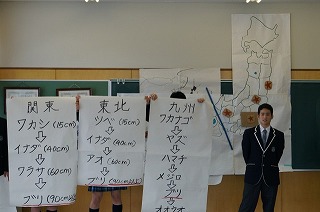 関東
ワカシ(15cm)
⇩
イナダ(40cm)
⇩
ワラサ(60cm)
⇩
ブリ(90cm以上)
東北
ツベ(15cm)
⇩
イナダ(40cm)
⇩
アオ(60cm)
⇩
ブリ(90cm以上)
九州
ワカナゴ
⇩
ヤズ
⇩
ハマチ
⇩
メジロ
⇩
ブリ
⇩
オオウオ